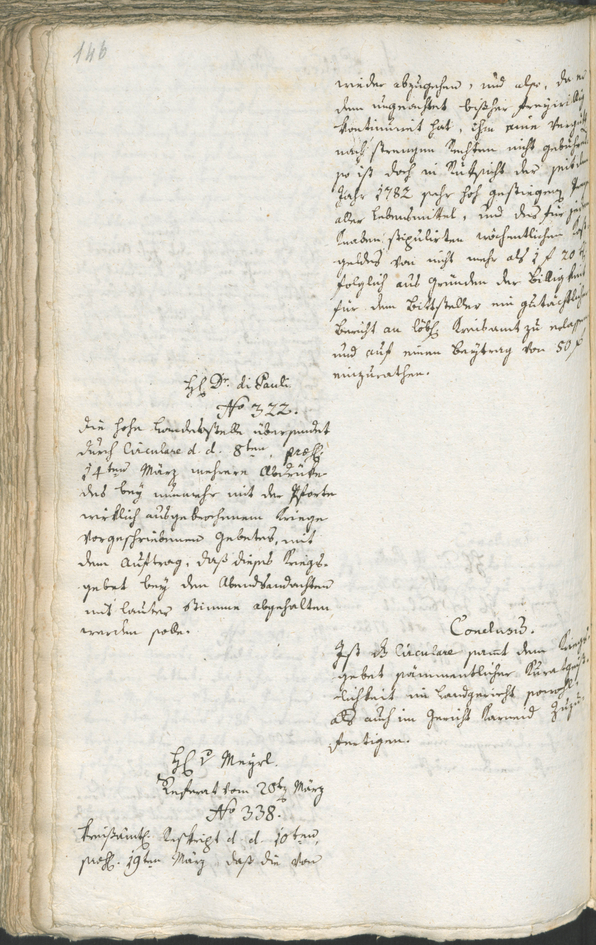 146
wieder abzugehen, und also, da er
dem ungeachtet bißher freywillig
kontinuirt hat, ihm eine
nach strengen Rechten nicht gebühre
so ist doch in Rücksicht der seit dem
Jahr 1782 sehr hoch gestiegenen
aller Lebensmittel, und des für jeden
Knaben stipulirten wöchentlichen
geldes von nicht mehr als 1 f 20
folglich aus Gründen der Billigkeit
für dem Bittsteller ein gutächtlicher
Bericht an löbl. Kreisamt zu erlassen
und auf einen Beytrag von 50 f
einzurathen.
H. Dr. di Pauli
No 322.
Die hohe Landesstelle übersendet
durch Circulare d. d. 8ten, præs.
14ten März mehrere Abdrücke
des bey nunmehr mit der Pforte
wirklich ausgebrochenem Kriege
vorgeschriebenen Gebetes, mit
dem Auftrag, daß dieses Kriegs-
gebet bey den Abendandachten
mit lauter Stimme abgehalten
werden solle.
Conclusum.
Ist das Circulare samt dem Kriegs
gebet sämmentlicher Kuratgeist-
lichkeit im Landgericht sowohl,
als auch im Gericht Karneid zuzu-
fertigen.
H. v Meyrl.
Referat vom 28ten März
No 338.
Kreisämtl. Reskript d. d. 10ten,
præs. 19ten März daß die von